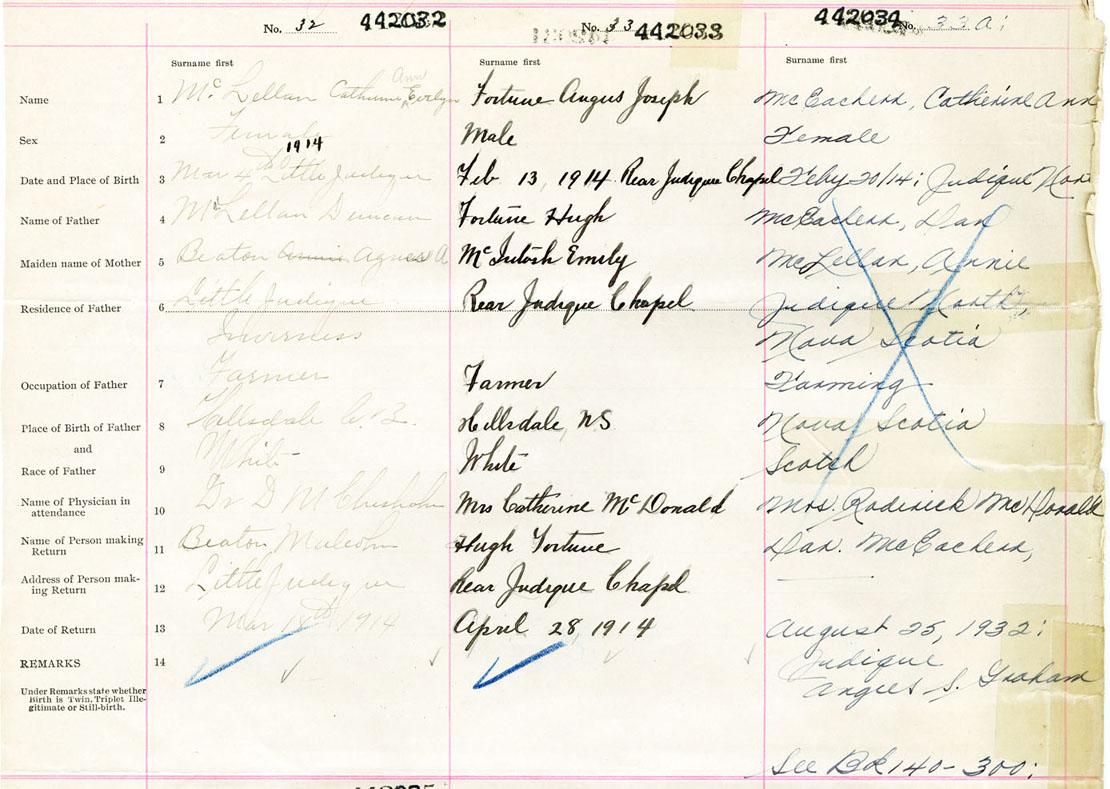 No. 32 442032 No. 33 442033 442034 No. 33A;
Surname first Surname first Surname first
Name 1 McLellan Catherine Ann Evelyn Fortune Angus Joseph McEachern, Catherine Ann
Sex 2 Female Male Female
1914
Date and Place of Birth 3 Mar 4 Little Judique Feb 13, 1914 Rear Judique Chapel Feby 20/14; Judique Nova
Name of Father 4 McLellan Duncan Fortune Hugh McEachern, Dan
Maiden name of Mother 5 Beaton Annie Agnes A McIntosh Emily McLellan, Annie
Residence of Father 6 Little Judique Rear Judique Chapel Judique North,
Inverness Nova Scotia
Occupation of Father 7 Farmer Farmer Farming
Place of Birth of Father 8 Hillsdale C.B. Hillsdale, NS Nova Scotia
and
Race of Father 9 White White Scotch
Name of Physician in attendance 10 Dr. D M Chisholm Mrs Catherine McDonald Mrs. Roderick McDonald
Name of Person making Return 11 Beaton Malcolm Hugh Fortune Dan. McEachern,
Address of Person making Return 12 Little Judique Rear Judique Chapel
Date of Return 13 Mar 18th 1914 April 28, 1914 August 25, 1932;
REMARKS 14 Judique
Angus S. Graham
Under Remarks state whether
Birth is Twin, Triplet Ille-
gitimate or Still-birth.
See Bk 140-300;